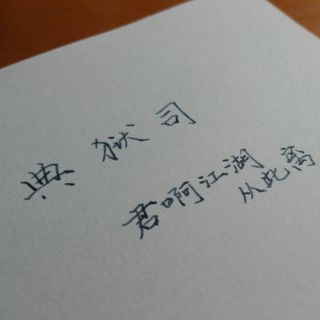 典狱司
君啊江湖
从此离